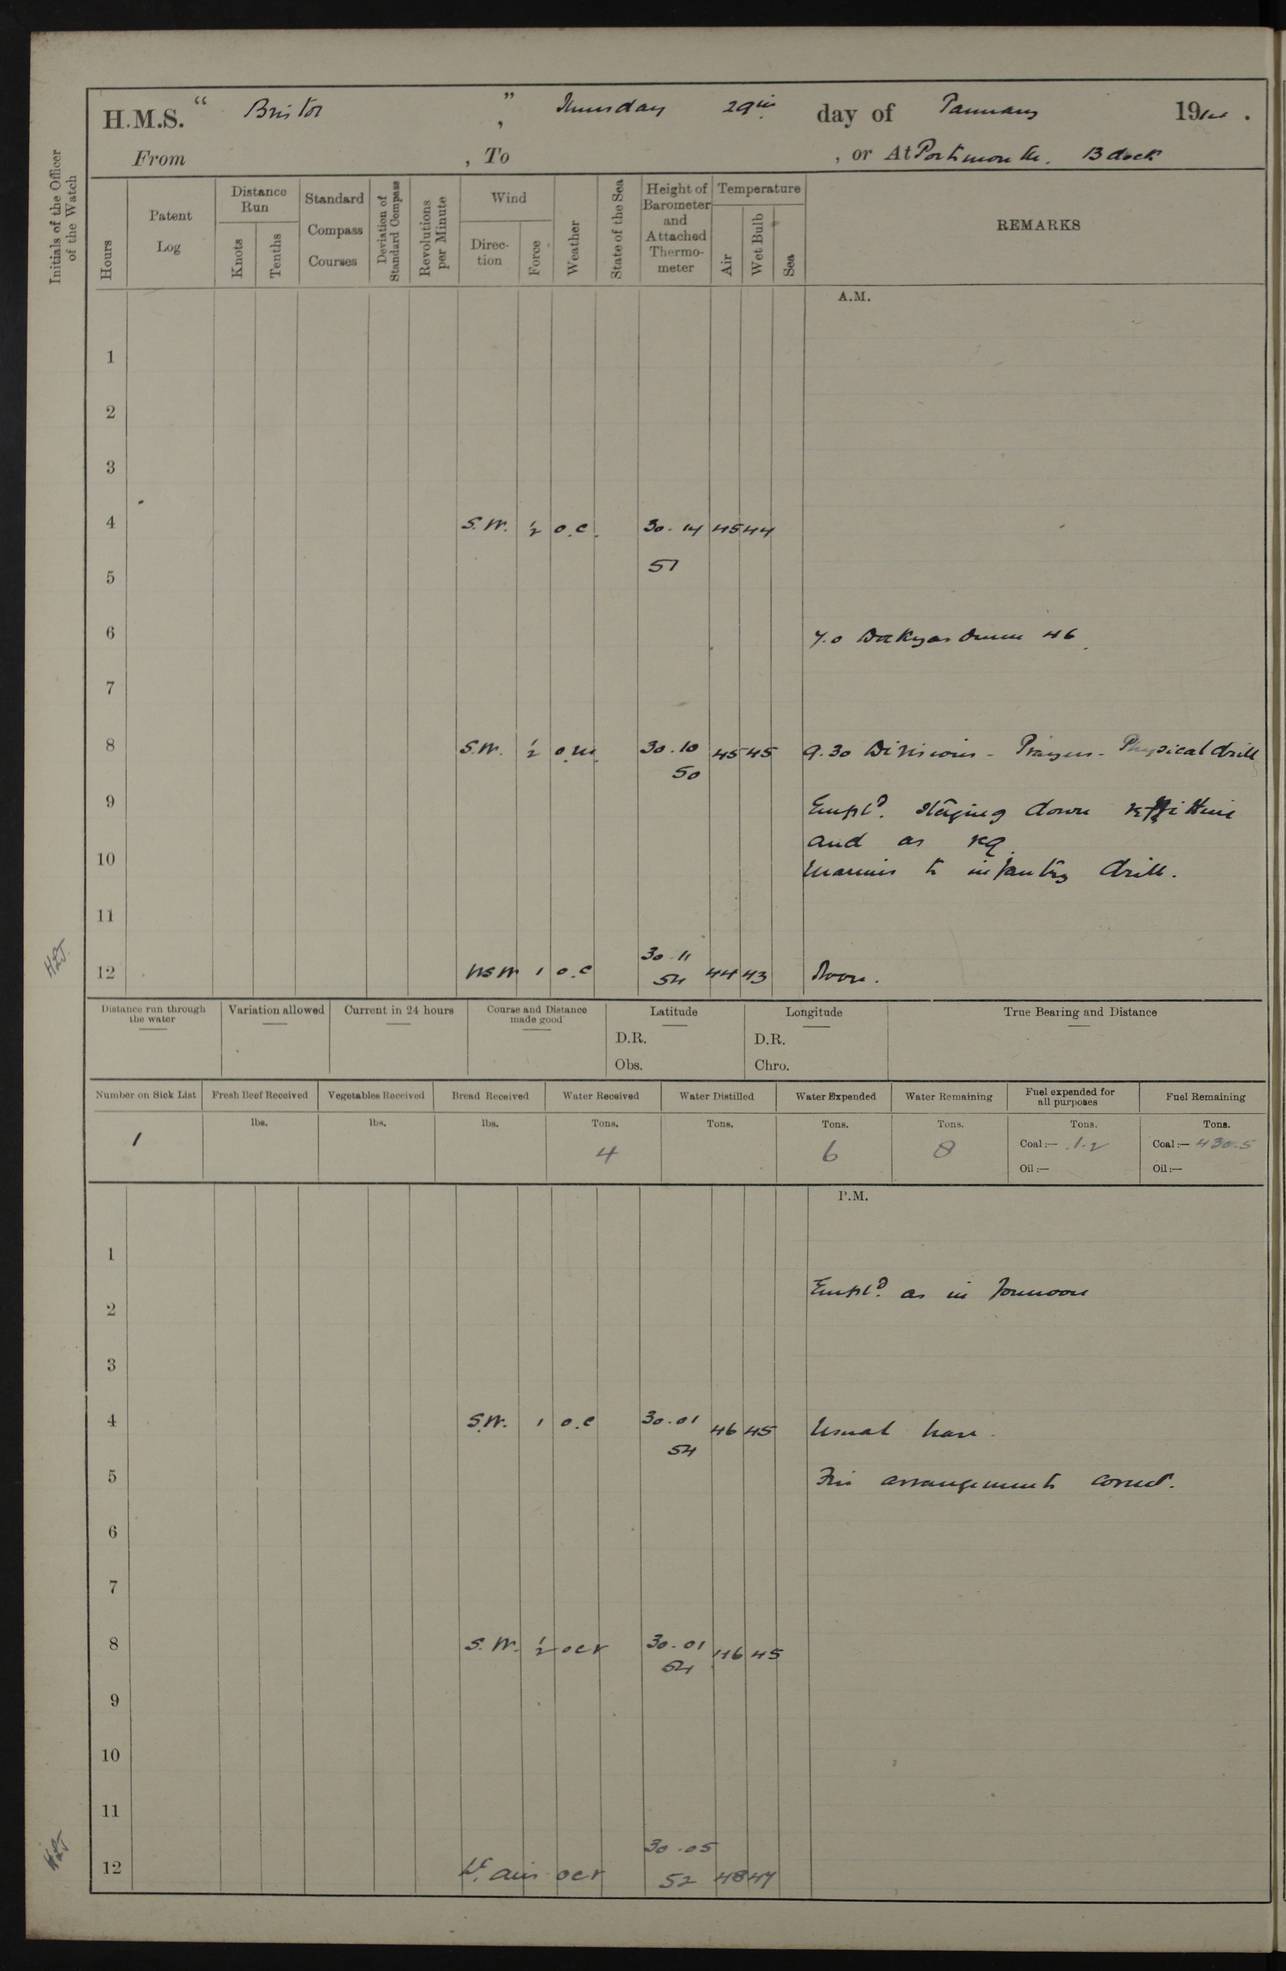 H.M.S. “ Bristol ” , Thursday 29th day of January 1914 .
From , To , or At Portsmouth. B dock
Initials of the Officer of the Watch
Hours
Patent Log
Distance Run
Knots
Tenths
Standard Compass Courses
Deviation of Standard Compass
Revolutions per Minute
Wind
Direction
Force
Weather
State of the Sea
Height of Barometer and Attached Thermometer
Temperature
Air
Wet Bulb
Sea
REMARKS
A.M.
1
2
3
4 S.W. ½ o.c. 30.14 45 44
51
5
6 7.0 46
7
8 S.W. ½ o.m. 30.10 45 45 9.30 Divisions - Prayers - Physical drill
50
9 Empld. staging down refitting
and as req.
10 Marines to infantry drill.
11
30.11
12 WSW 1 o.c 54 44 43 Noon.
H.L.J.
Distance run through the water
Variation allowed
Current in 24 hours
Course and Distance made good
Latitude
D.R.
Obs.
Longitude
D.R.
Chro.
True Bearing and Distance
Number on Sick List
Fresh Beef Received
Vegetables Received
Bread Received
Water Received
Water Distilled
Water Expended
Water Remaining
Fuel expended for all purposes
Fuel Remaining
lbs. lbs. lbs. Tons. Tons. Tons. Tons. Tons. Tons.
1 4 6 8 Coal :— 1.2 Coal :— 430.5
Oil :— Oil :—
P.M.
1
Empld. as in forenoon
2
3
4 S.W. 1 o.c 30.01 46 45 Usual leave.
54
5 Fire arrangements correct.
6
7
8 S.W. ½ ocr 30.01 46 45
54
9
10
11
30.05
12 Lt. airs ocr 52 48 47